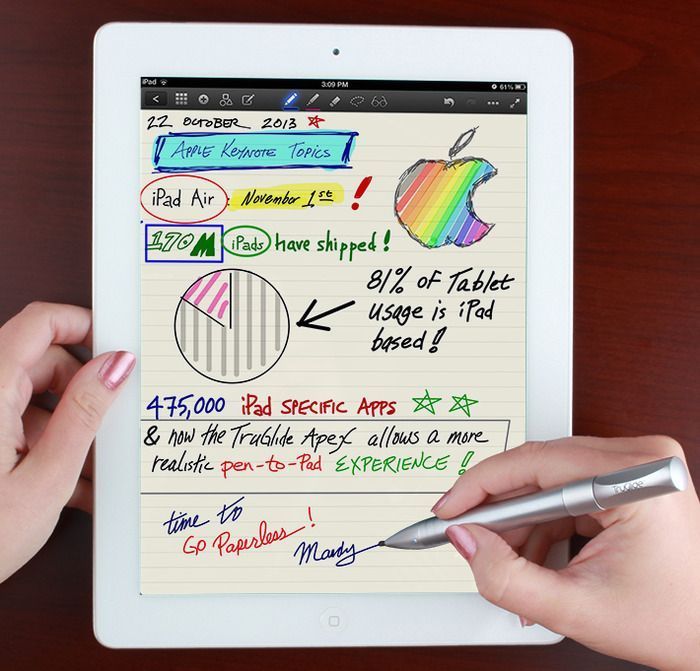 iPad 3:09 PM 61%
22 OCTOBER 2013
APPLE KEYNOTE TOPICS
iPad Air : November 1st !
170M iPads have shipped!
81% of Tablet
usage is iPad
based!
475,000 iPad SPECIFIC APPS
& how the TruGlide Apex allows a more
realistic pen-to-Pad EXPERIENCE!
time to
Go Paperless!
Mandy
TruGlide